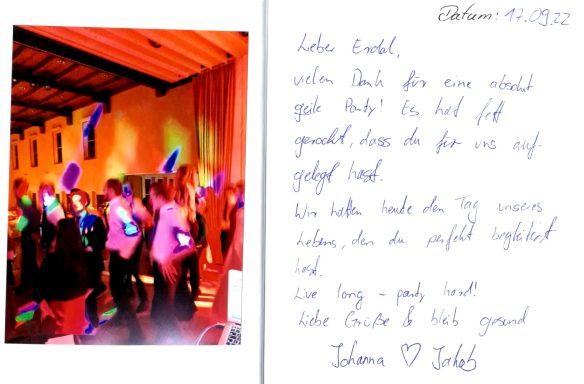 Datum: 17.09.22
Lieber Erdal,
vielen Dank für eine absolut
geile Party! Es hat fett
gerockt, dass du für uns auf-
gelegt hast.
Wir hatten heute den Tag unseres
Lebens, den du perfekt begleitest
hast.
Live long – party hard!
Liebe Grüße & bleib gesund
Johanna ♡ Jakob